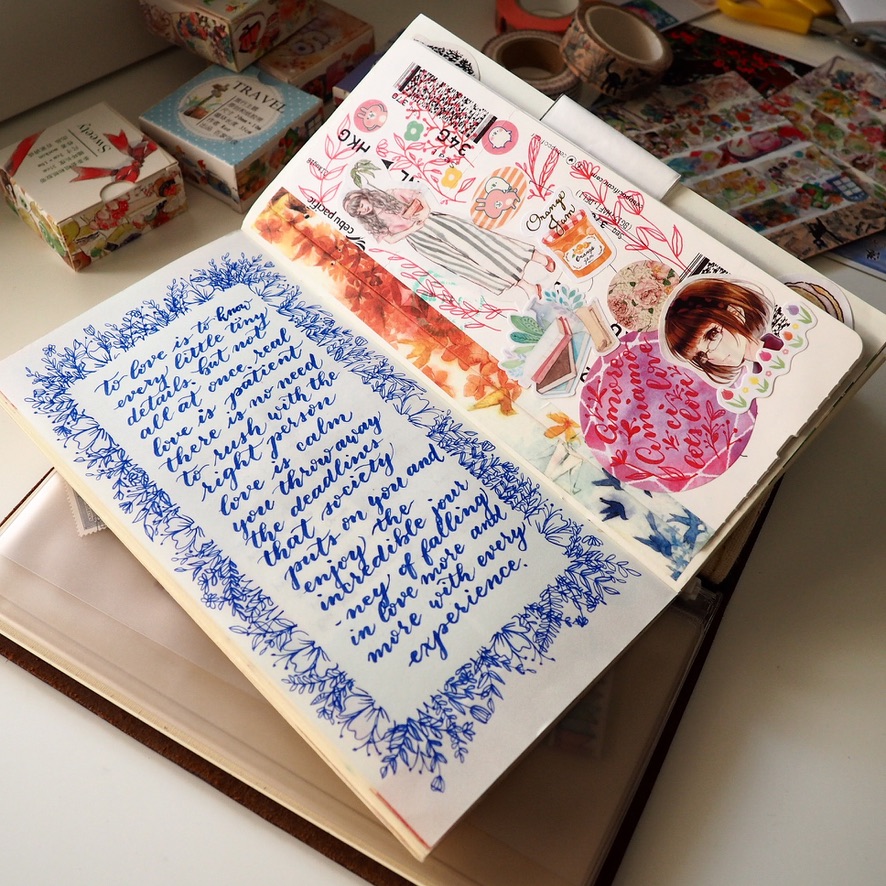 to love is to know
every little tiny
details. but not
all at once. real
love is patient
there is no need
to rush with the
right person
love is calm
you throw away
the deadlines
that society
puts on you and
enjoy the
incredible jour
-ney of falling
in love more and
more with every
experience.
HKG
34G
cebu pacific
Orange
Jam
Orange
let's live
TRAVEL
Sweety